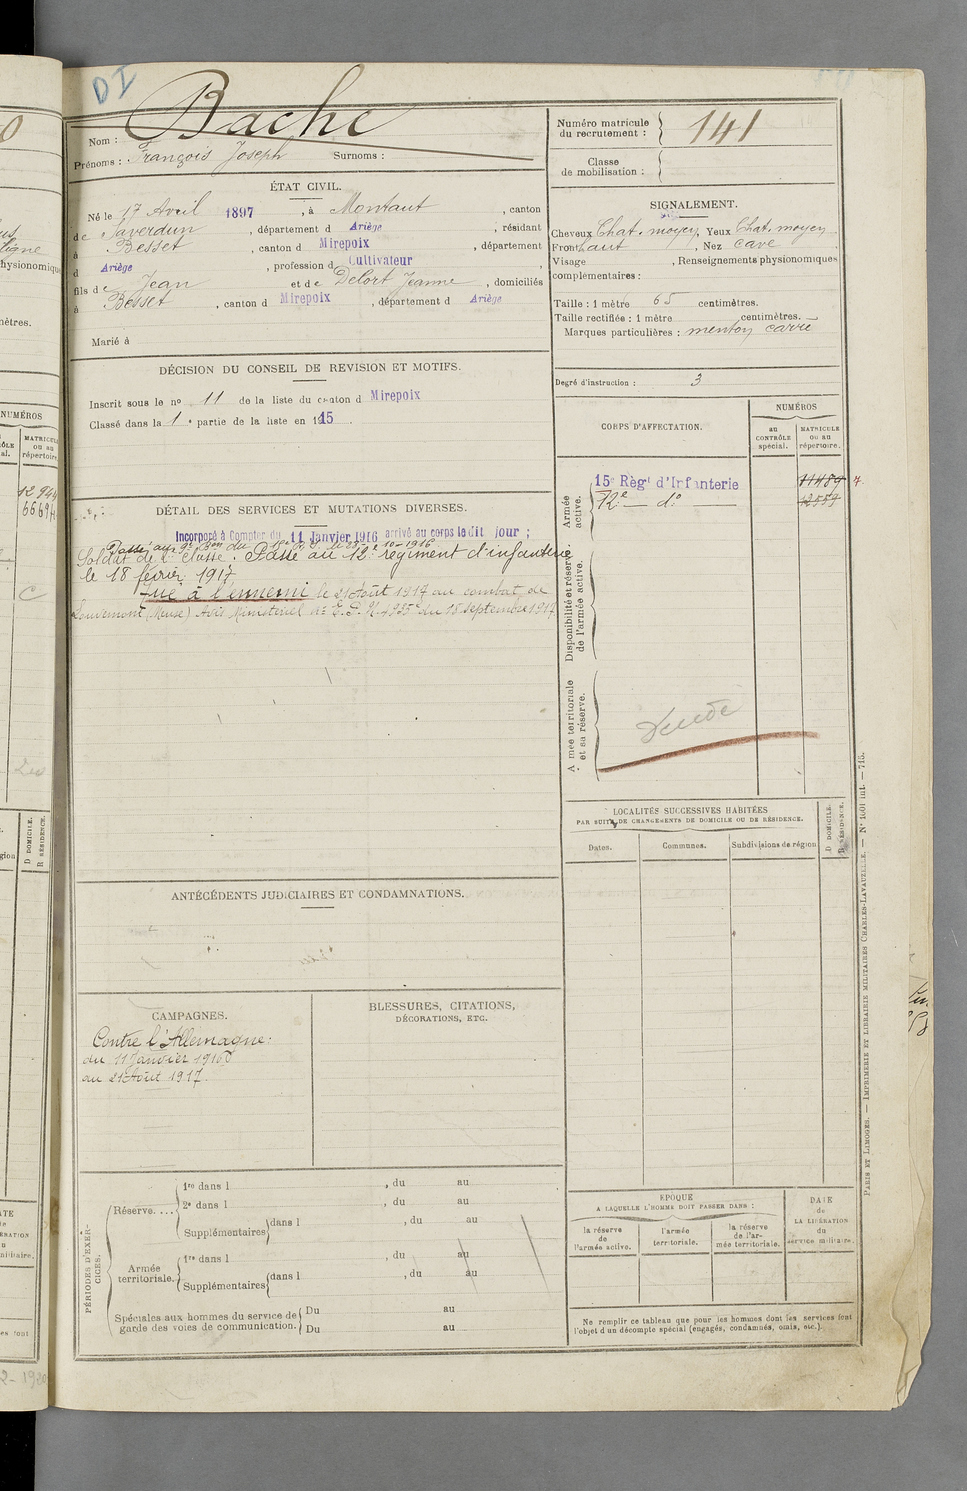 DI
Nom : Bache
Prénoms : François Joseph Surnoms :
ÉTAT CIVIL.
Né le 17 Avril 1897, à Montaut, canton
de Saverdun, département d Ariège, résidant
à Besset, canton d Mirepoix, département
d Ariège, profession d Cultivateur,
fils de Jean et de Delort Jeanne, domiciliés
à Besset, canton d Mirepoix, département d Ariège
Marié à
DÉCISION DU CONSEIL DE REVISION ET MOTIFS.
Inscrit sous le no 11 de la liste du canton d Mirepoix
Classé dans la 1e partie de la liste en 1915.
DÉTAIL DES SERVICES ET MUTATIONS DIVERSES.
Incorporé à Compter du 11 Janvier 1916 arrivé au corps le dit jour ;
Passé au 9e Bon du 15e R.I. le 10-1916
Soldat de 2e classe. Passé au 12e régiment d'infanterie
le 18 février 1917
Tué à l'ennemi le 21 Août 1917 au combat de
Louvemont (Meuse) Avis Ministériel du 15 septembre 1917
ANTÉCÉDENTS JUDICIAIRES ET CONDAMNATIONS.
CAMPAGNES.
Contre l'Allemagne :
du 11 Janvier 1916
au 21 Août 1917.
BLESSURES, CITATIONS,
DÉCORATIONS, ETC.
PÉRIODES D'EXERCICES.
Réserve....
1re dans l , du au
2e dans l , du au
Supplémentaires dans l , du au
Armée
territoriale.
1re dans l , du au
Supplémentaires dans l , du au
Spéciales aux hommes du service de
garde des voies de communication.
Du au
Du au
Numéro matricule
du recrutement : 141
Classe
de mobilisation :
SIGNALEMENT.
Cheveux Chat. moyen, Yeux Chat. moyen
Front haut, Nez cave
Visage , Renseignements physionomiques
complémentaires :
Taille : 1 mètre 65 centimètres.
Taille rectifiée : 1 mètre centimètres.
Marques particulières : menton carré
Degré d'instruction : 3
CORPS D'AFFECTATION.
NUMÉROS
au
CONTRÔLE
spécial.
MATRICULE
ou au
répertoire.
Armée
active.
15e Régt d'Infanterie 11489
12e — do — 12559
Disponibilité et réserve
de l'armée active.
Armée territoriale
et sa réserve.
Décédé
LOCALITÉS SUCCESSIVES HABITÉES
PAR SUITE DE CHANGEMENTS DE DOMICILE OU DE RÉSIDENCE.
Dates.
Communes.
Subdivisions de région.
D DOMICILE.
R RÉSIDENCE.
ÉPOQUE
A LAQUELLE L'HOMME DOIT PASSER DANS :
la réserve
de
l'armée active.
l'armée
territoriale.
la réserve
de l'ar-
mée territoriale.
DATE
de
LA LIBÉRATION
du
service militaire.
Ne remplir ce tableau que pour les hommes dont les services font
l'objet d'un décompte spécial (engagés, condamnés, omis, etc.).
PARIS ET LIMOGES. — IMPRIMERIE ET LIBRAIRIE MILITAIRES CHARLES-LAVAUZELLE. — No 1601 int. — 715.